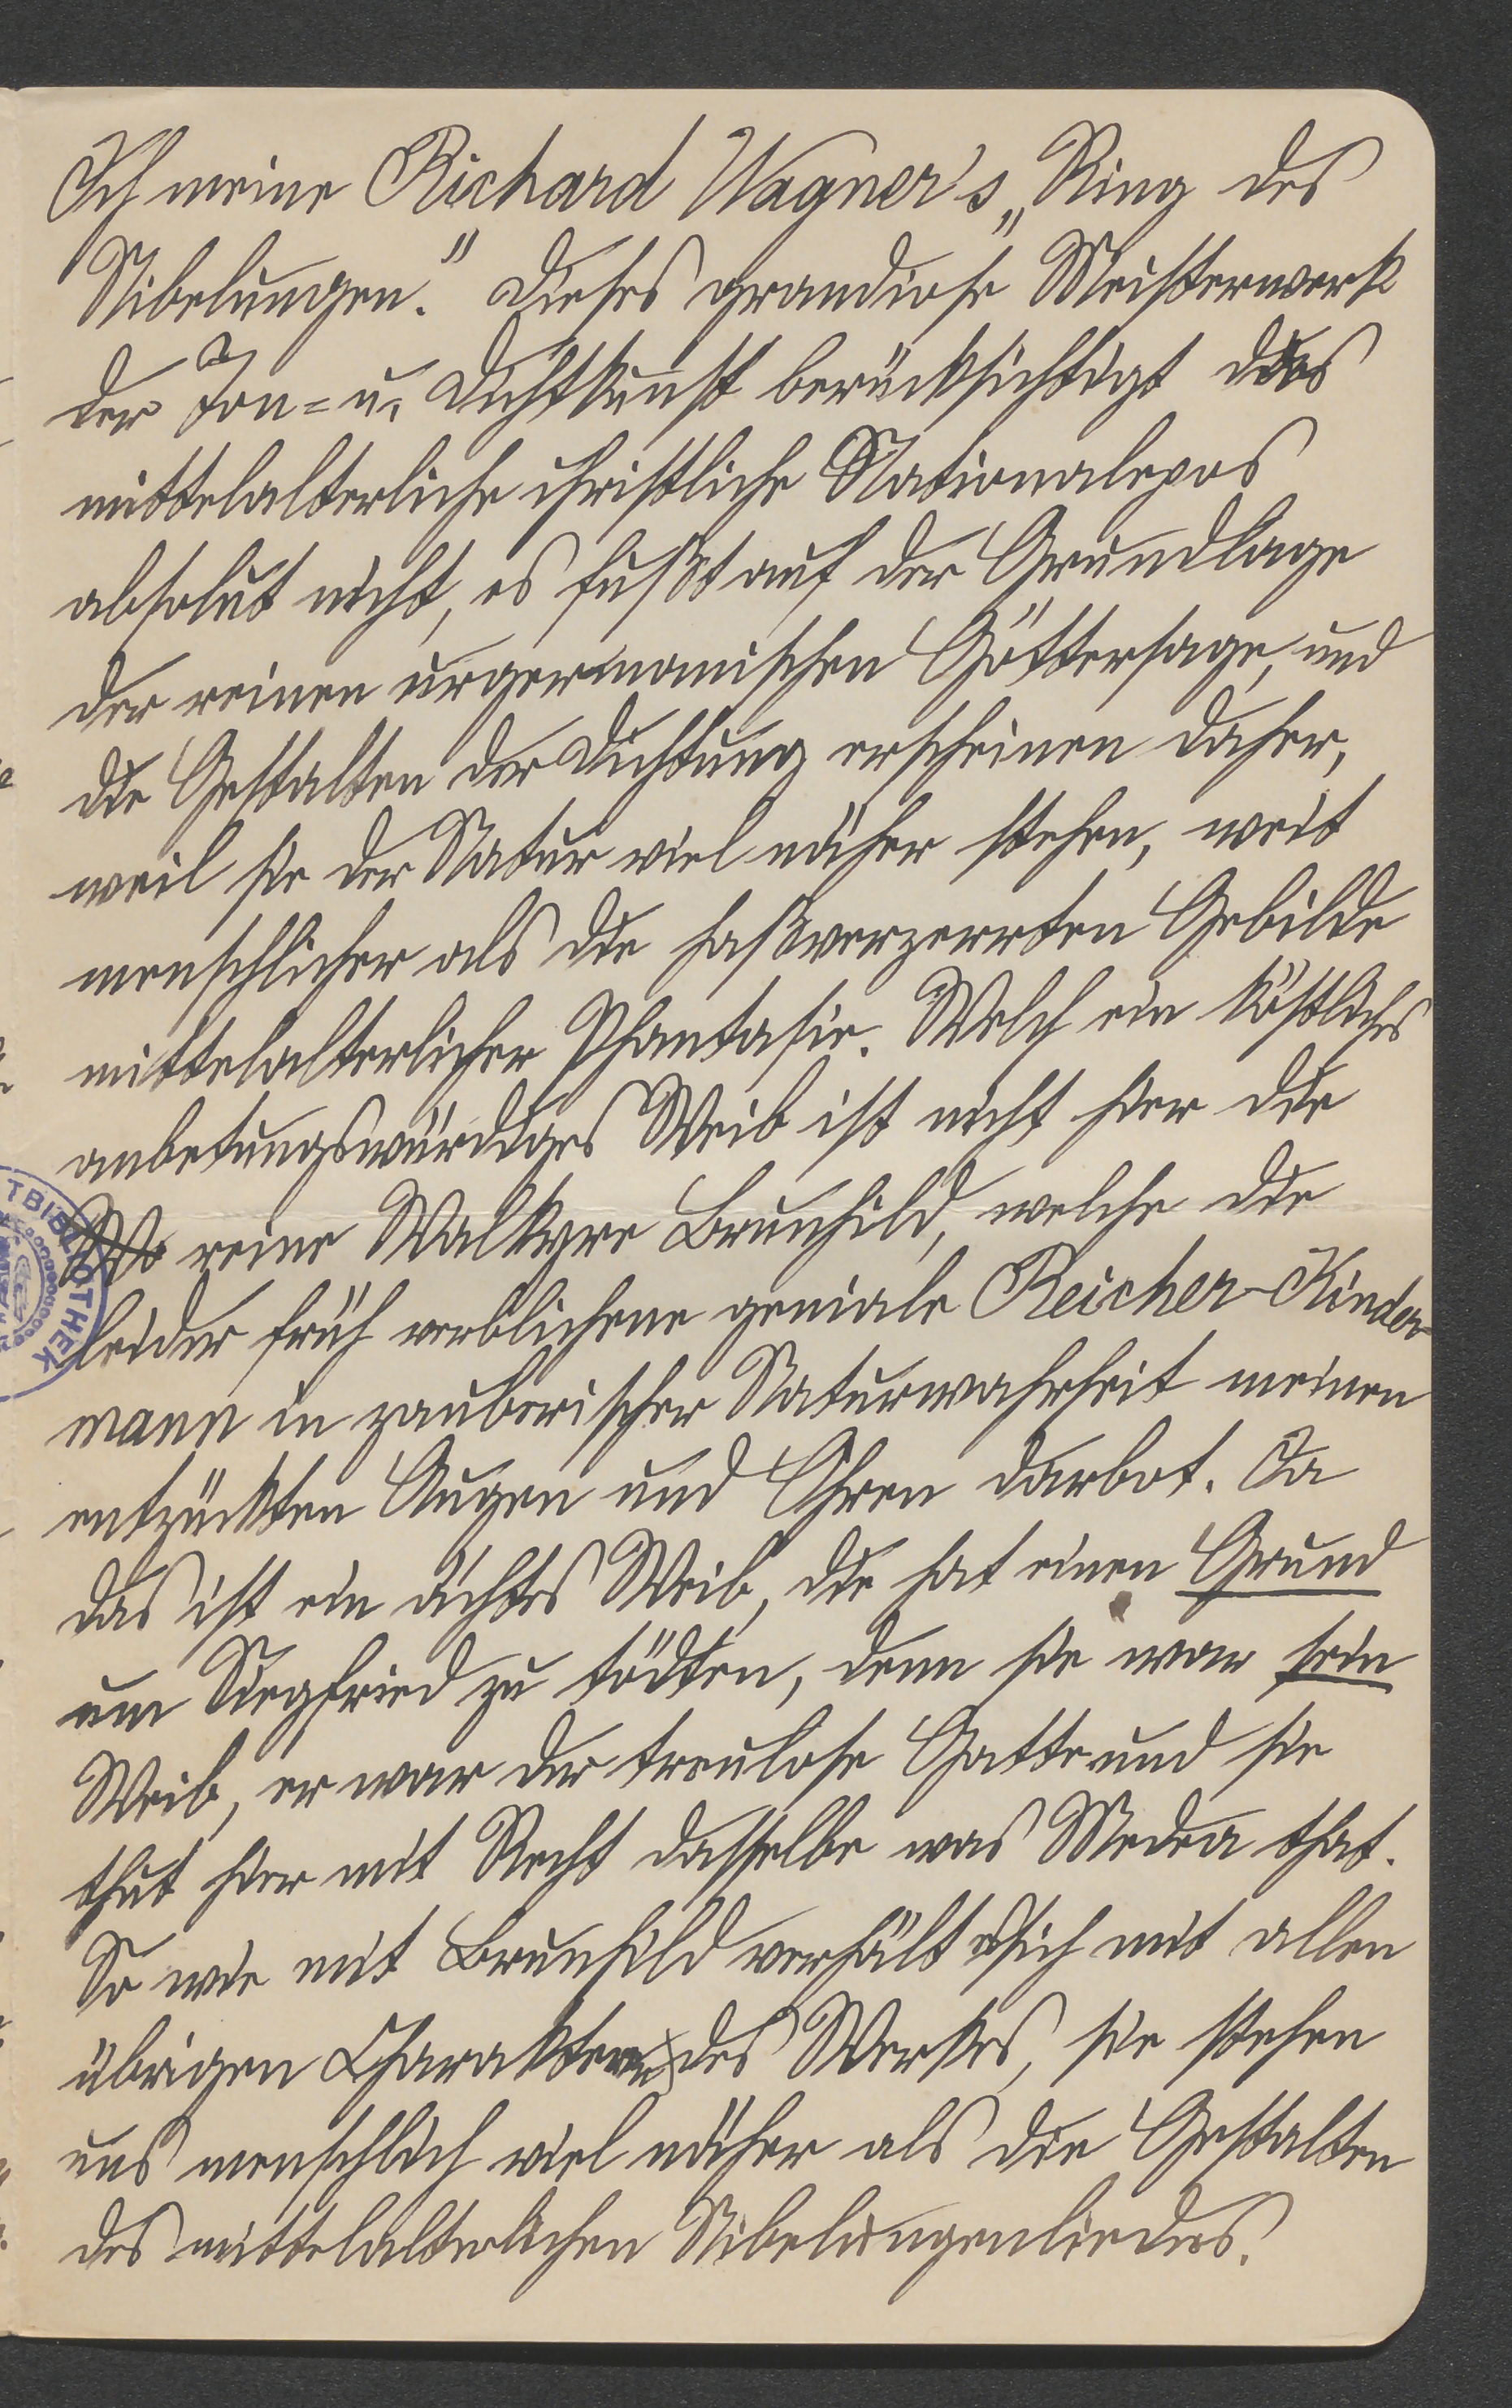 Ich meine Richard Wagner's „Ring des
Nibelungen." Dieses grandiose Meisterwerk
der Ton- u. Dichtkunst berücksichtigt das
mittelalterliche christliche Nationalepos
absolut nicht, es fußt auf der Grundlage
der reinen urgermanischen Göttersage, und
die Gestalten der Dichtung erscheinen daher,
weil sie der Natur viel näher stehen, weit
menschlicher als die haßverzerrten Gebilde
mittelalterlicher Phantasie. Welch ein köstliches
anbetungswürdiges Weib ist nicht hier die
reine Walkyre Brunhild, welche die
leider früh verblichene geniale Reicher-Kinder-
mann in zauberischer Naturwahrheit meinen
entzückten Augen und Ohren darbot. Ja
das ist ein ächtes Weib, die hat einen Grund
um Siegfried zu tödten, denn sie war sein
Weib, er war der treulose Gatte und sie
thut hier mit Recht dasselbe was Medea that.
So wie mit Brunhild verhält es sich mit allen
übrigen Charakteren des Werkes, sie stehen
uns menschlich viel näher als die Gestalten
des mittelalterlichen Nibelungenliedes.
TBIBLIOTHEK